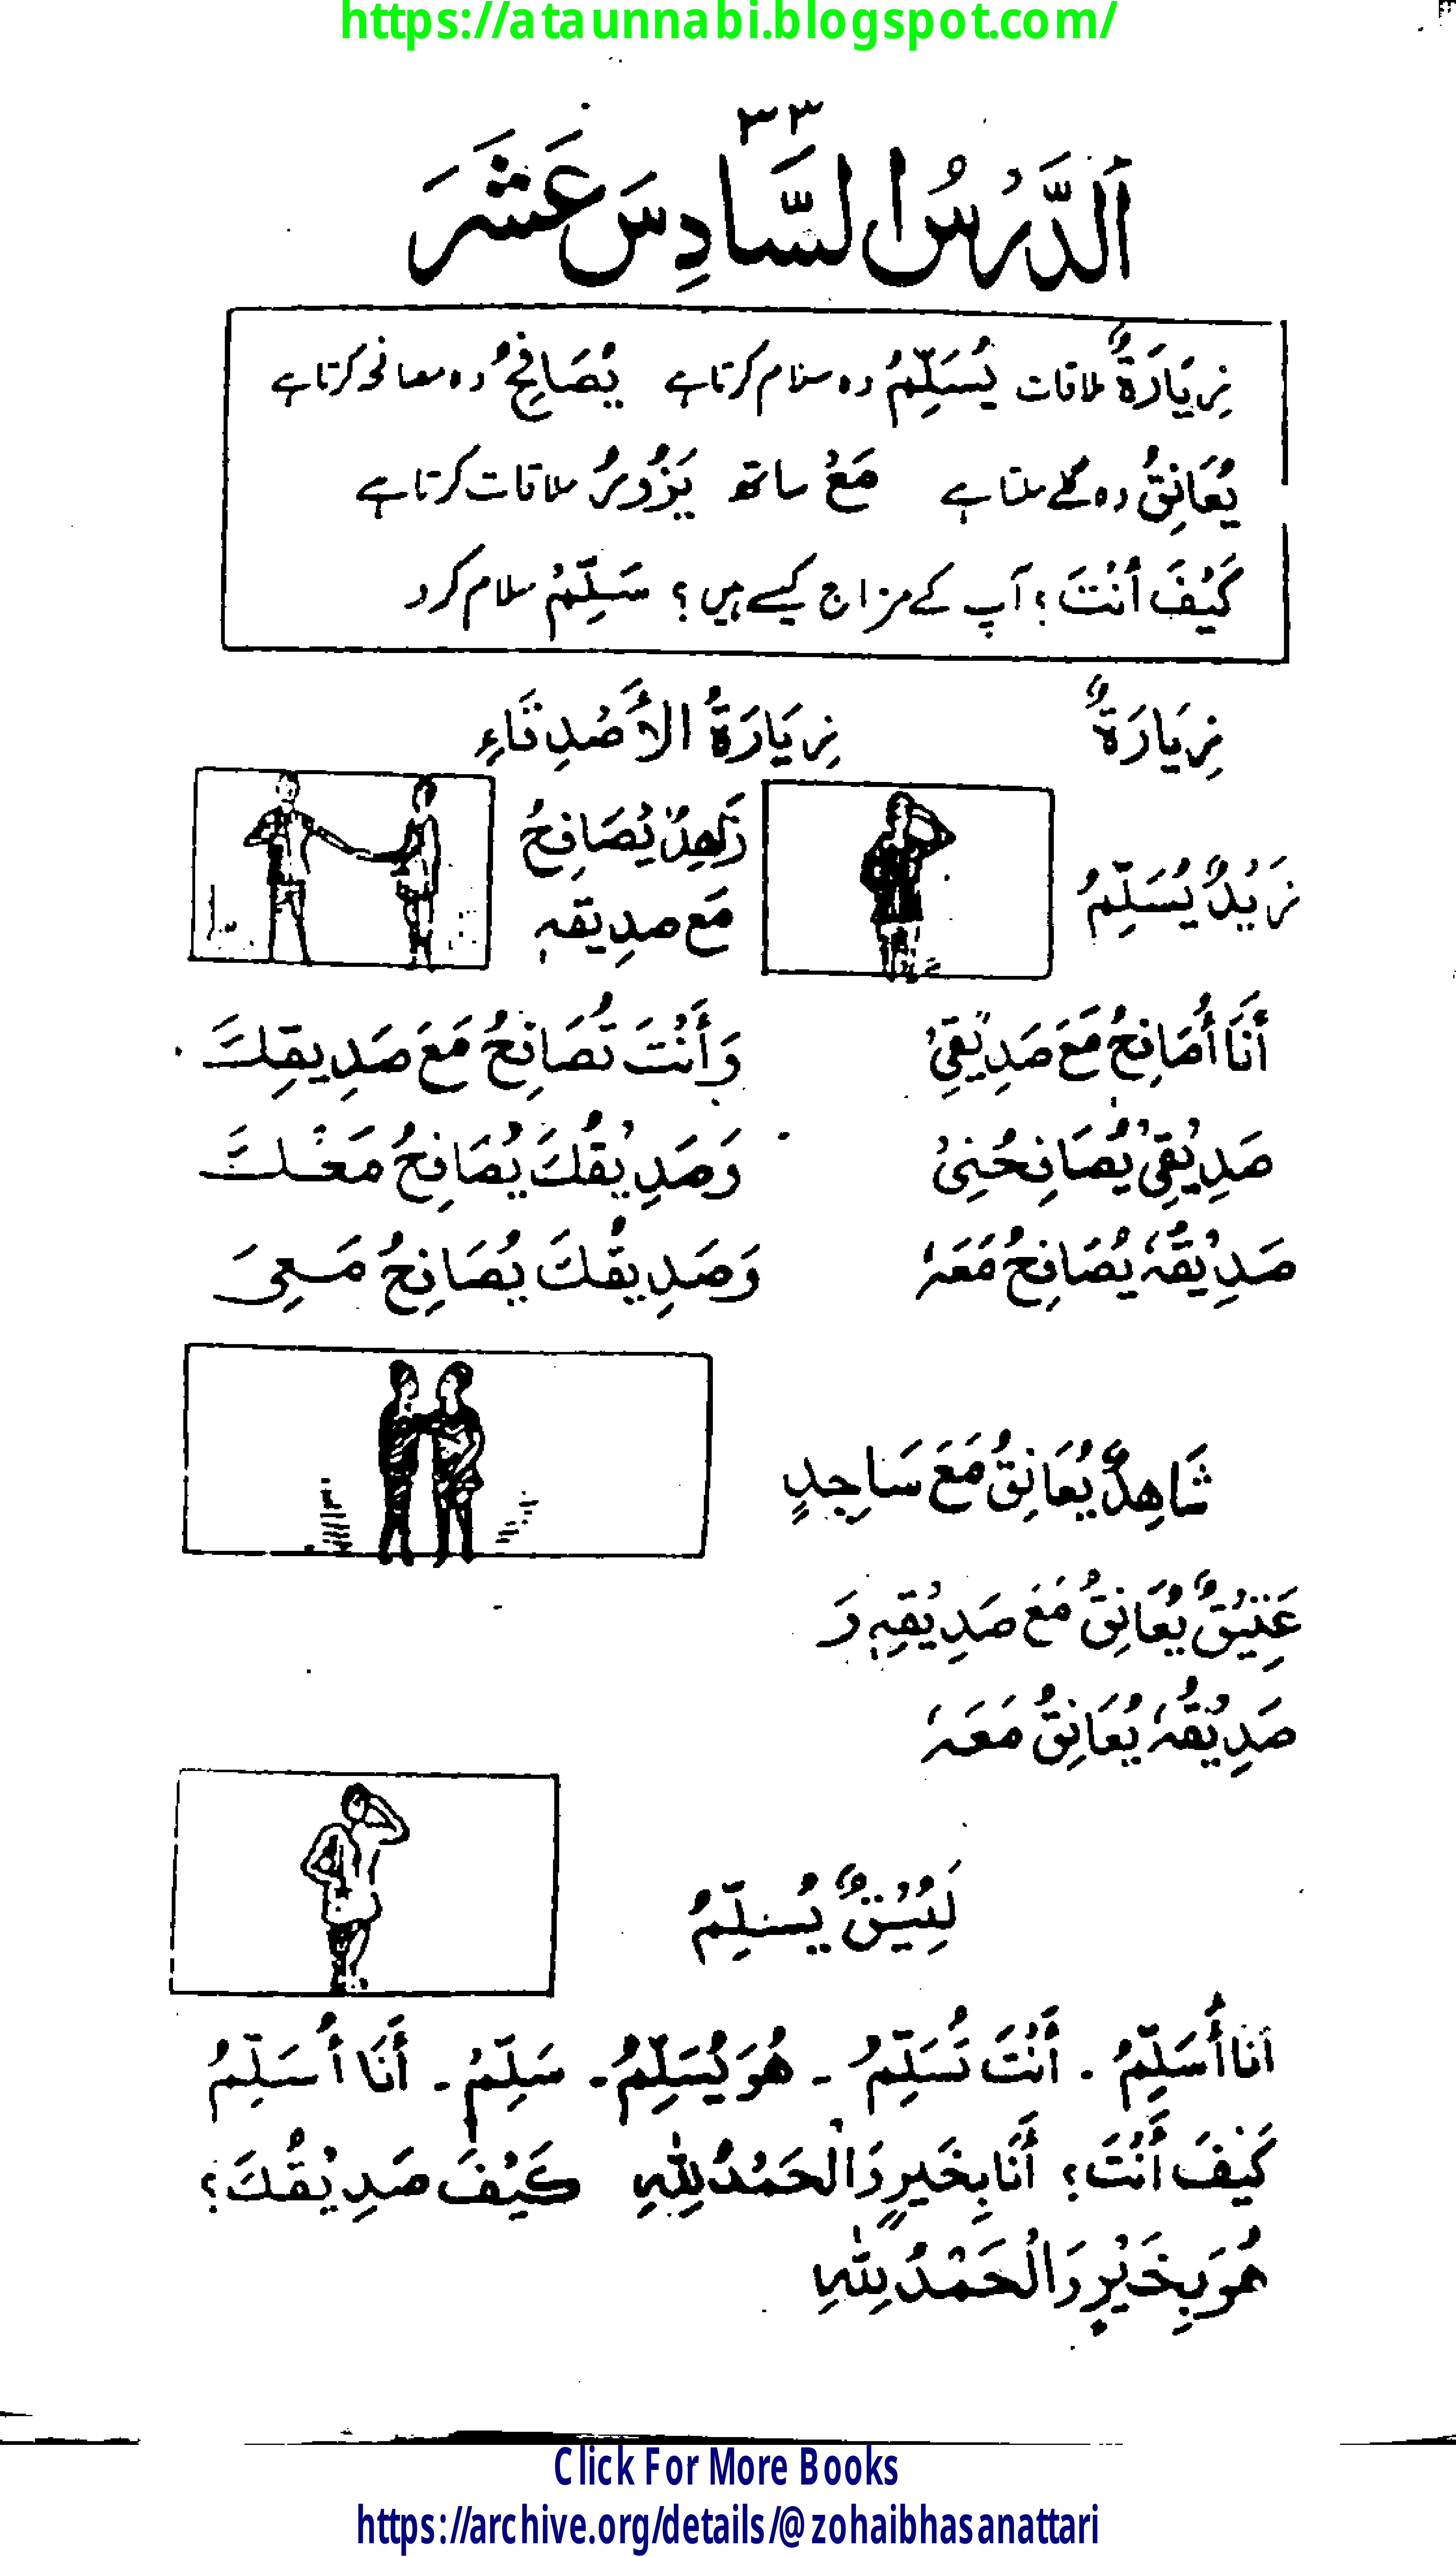 https://ataunnabi.blogspot.com/
٣٣
اَلدَّرْسُ السَّادِسَ عَشَرَ
زِيَارَةٌ ملاقات يُسَلِّمُ وہ سلام کرتا ہے يُصَافِحُ وہ معانحہ کرتا ہے
يُعَانِقُ وہ گلے ملتا ہے مَعْ ساتھ يَزُورُ ملاقات کرتا ہے
كَيْفَ أَنْتَ؟ آپ کے مزاج کیسے ہیں؟ سَلِّمْ سلام کرو
زِيَارَةٌ زِيَارَةُ الأَصْدِقَاءِ
زَيْدٌ يُسَلِّمُ
زَاهِدٌ يُصَافِحُ
مَع صديقهٖ
أَنَا أُصَافِحُ مَعَ صَدِيْقِيْ وَأَنْتَ تُصَافِحُ مَعَ صَدِيقِكَ
صَدِيْقِيْ يُصَافِحُنِيْ وَصَدِيْقُكَ يُصَافِحُ مَعَكَ
صَدِيْقُهٗ يُصَافِحُ مَعَهٗ وَصَدِيقُكَ يُصَافِحُ مَعِيَ
شَاهِدٌ يُعَانِقُ مَعَ سَاجِدٍ
عَتِيْقٌ يُعَانِقُ مَعَ صَدِيْقِهٖ وَ
صَدِيْقُهٗ يُعَانِقُ مَعَهٗ
لَئِيْقٌ يُسلِّمُ
اَنَا أُسَلِّمُ - أَنْتَ تُسَلِّمُ - هُوَ يُسَلِّمُ - سَلِّمْ - أَنَا أُسَلِّمُ
كَيْفَ أَنْتَ؟ أَنَا بِخَيرٍ وَالْحَمْدُ لِلّٰهِ كَيْفَ صَدِيْقُكَ؟
هُوَ بِخَيْرٍ وَالْحَمْدُ لِلّٰهِ
Click For More Books
https://archive.org/details/@zohaibhasanattari